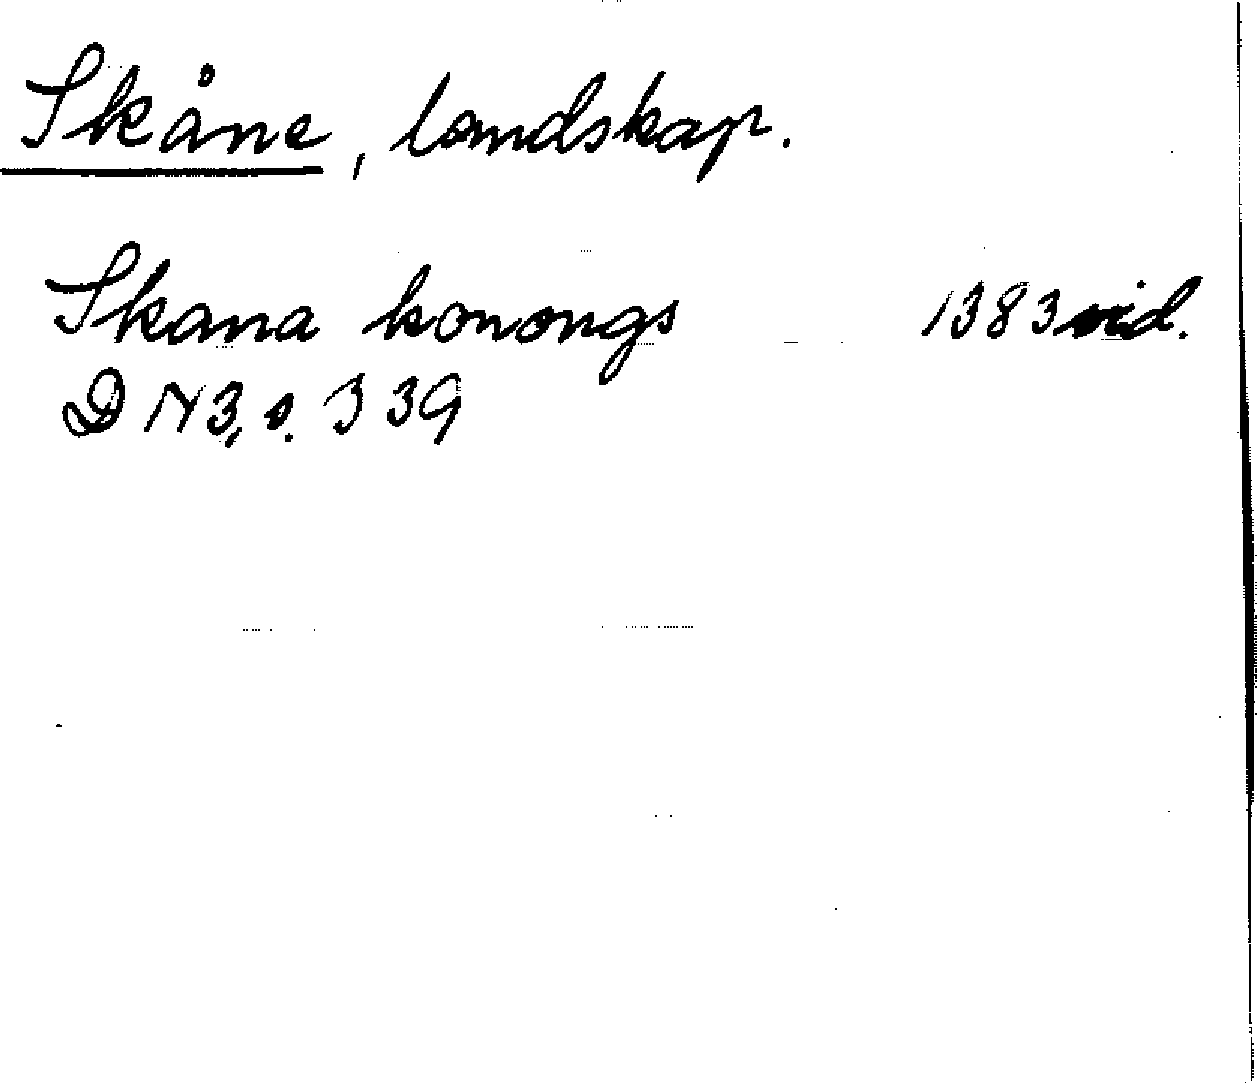 Skåne, landskap.
Skana konongs 1383 vid.
DN 3, s. 339